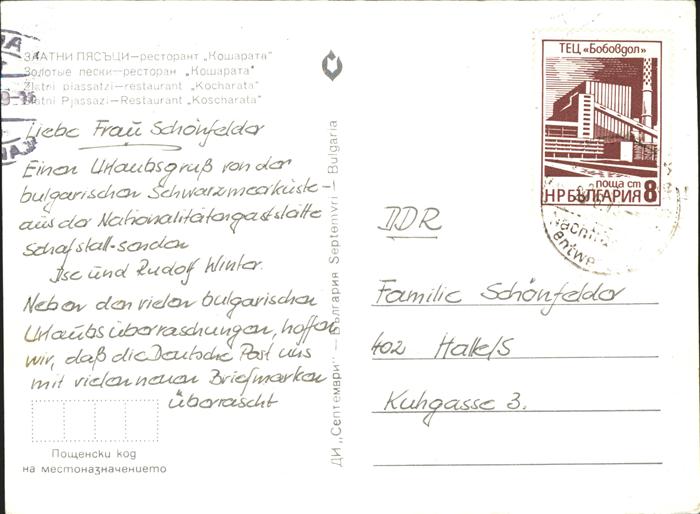 ЗЛАТНИ ПЯСЪЦИ—ресторант „Кошарата"
Золотые пески—ресторан „Кошарата"
Zlatni piassatzi—restaurant „Kocharata"
Zlatni Pjassazi—Restaurant „Koscharata"
Liebe Frau Schönfelder
Einen Urlaubsgruß von der
bulgarischen Schwarzmeerküste
aus der Nationalitätengaststätte
Schafstall senden
Ilse und Rudolf Winter.
Neben den vielen bulgarischen
Urlaubsüberraschungen, hoffen
wir, daß die Deutsche Post uns
mit vielen neuen Briefmarken
überrascht
Пощенски код
на местоназначението
ДИ „Септември" — България Septemvri — Bulgaria
ТЕЦ «Бобовдол»
поща ст 8
НРБЪЛГАРИЯ
DDR
Familie Schönfelder
402 Halle/S
Kuhgasse 3.